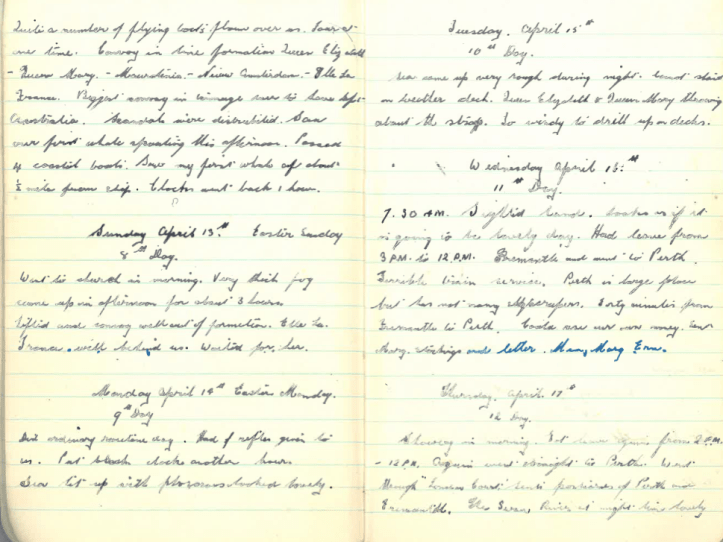 Quite a number of flying boats flown over us. Four at
one time. Convoy in line formation Queen Elizabeth
- Queen Mary. - Mauretania. - Nieuw Amsterdam. - Ille La
France. Biggest convoy in tonnage ever to have left
Australia. were distributed. Saw
our first whale spouting this afternoon. Passed
4 coastal boats. Saw my first whale off about
½ mile from ship. Clocks went back 1 hour.
Sunday April 13th. Easter Sunday
8th Day.
Went to church in morning. Very thick fog
came up in afternoon for about 3 hours
lifted and convoy well out of formation. Ille La
France. with behind us. Waited for her.
Monday April 14th Easter Monday.
9th Day
Just ordinary routine day. Had rifles given to
us. Put back clocks another hour.
Sea lit up with looked lovely.
Tuesday. April 15th
10th Day.
Sea came up very rough during night. Cannot stand
on weather deck. Queen Elizabeth & Queen Mary throwing
about the . To windy to drill up on decks.
Wednesday April 16th
11th Day.
7.30 AM. Sighted land. looks as if it
is going to be lovely day. Had leave from
3 PM. to 12 P.M. Fremantle and went to Perth.
Terrible train service. Perth is large place
but has not many skyscrapers. Forty minutes from
Fremantle to Perth. our own money. Sent
Marg. stockings and letter. Mum, Marg Ern.
Thursday. April. 17th
12 Day.
Showery in morning. Got leave again from 2 P.M.
- 12 P.M. Again went straight to Perth. Went
through "London Court" Perth and
Fremantle. The Swan River at night time lovely